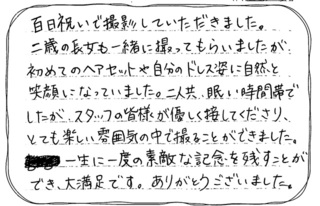 百日祝いで撮影していただきました。
二歳の長女も一緒に撮ってもらいましたが
初めてのヘアセットや自分のドレス姿に自然と
笑顔になっていました。二人共、眠い時間帯で
したが、スタッフの皆様が優しく接してくださり、
とても楽しい雰囲気の中で撮ることができました。
一生に一度の素敵な記念を残すことが
でき、大満足です。ありがとうございました。